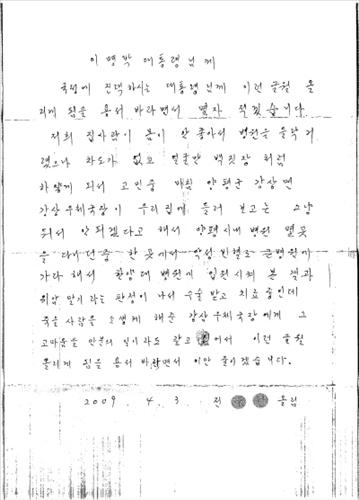 이명박 대통령님께
국정에 진력하시는 대통령님께 이런 글월 올
리게 됨을 용서 바라면서 몇자 적겠습니다
저희 집사람이 몸이 안 좋아서 병원을 들락거
렸으나 차도가 없고 얼굴만 백짓장처럼
하얗게 되서 고민중 마침 양평군 강상면
강상우체국장이 우리집에 들러 보고는 그냥
둬서 안되겠다고 해서 양평시내 병원 몇곳
을 다니던중 한 곳에서 악성빈혈로 큰병원에
가라 해서 한양대 병원에 입원시켜 본 결과
위암 말기라는 판정이 나서 수술받고 치료중인데
죽을 사람을 소생케 해준 강상우체국장에게 그
고마운을 만분의 일이라도 갚고 어서 이런 글월
올리게 됨을 용서 바라면서 이만 줄이겠습니다.
2009. 4. 3. 전 올림